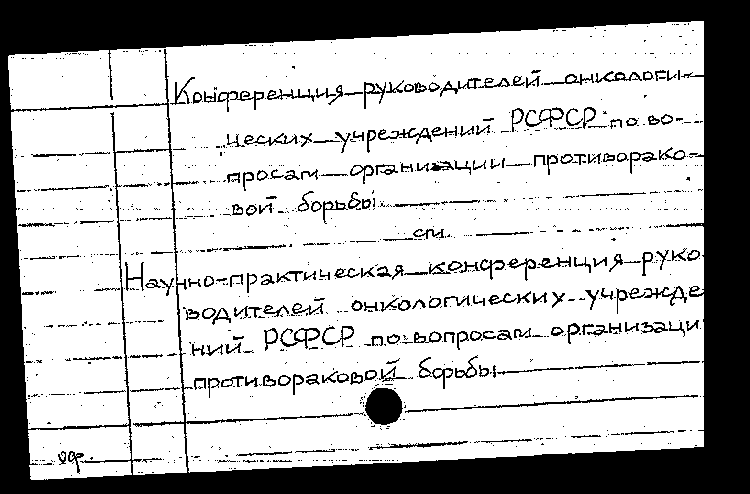 Конференция руководителей онкологи-
ческих учреждений РСФСР по во-
просам организации противорако-
вой борьбы
см.
Научно-практическая конференция руко
водителей онкологических учрежде
ний РСФСР по вопросам организаци
противораковой борьбы